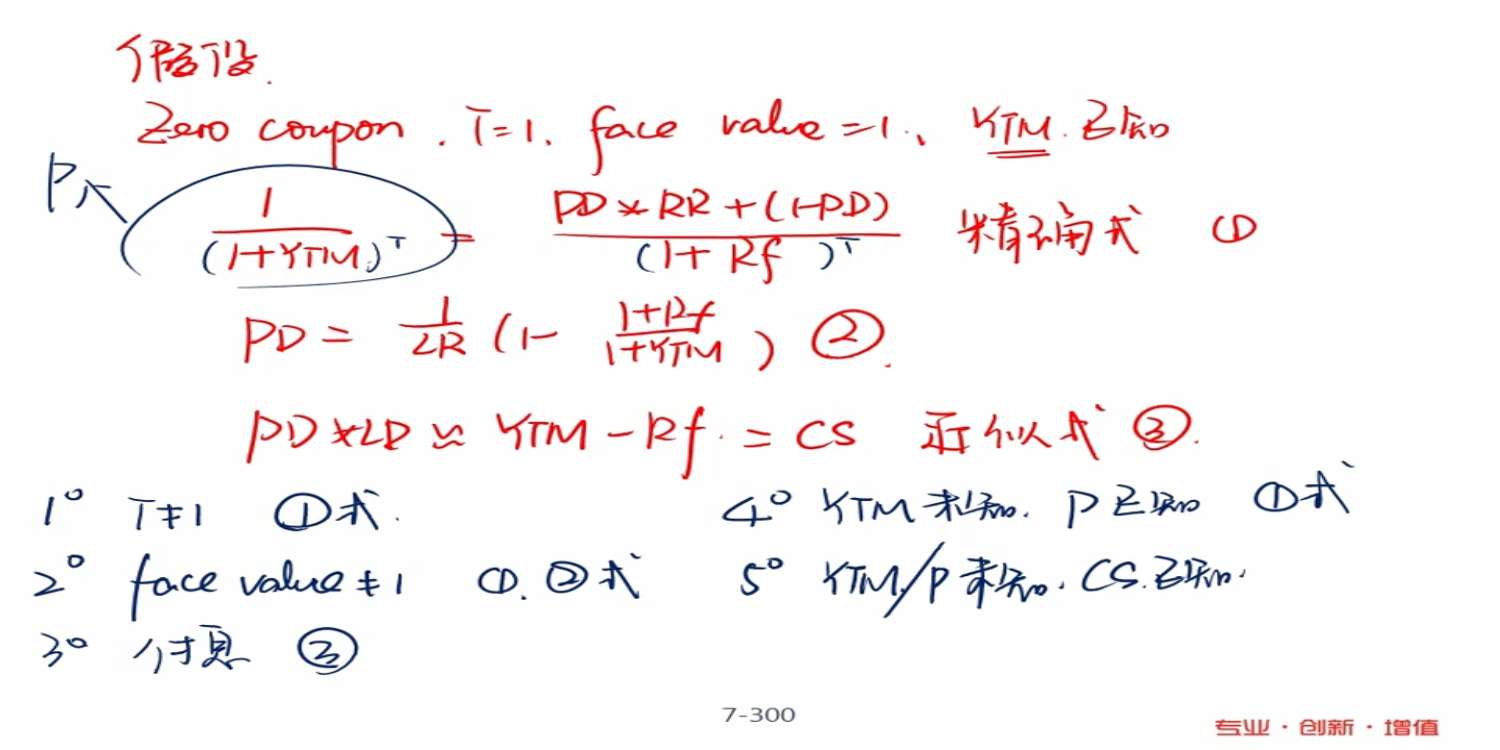 假设.
Zero coupon. T=1、face value=1、YTM.已知
P
1/(1+YTM)^T = (PD*RR+(1-PD))/(1+Rf)^T 精确式 ①
PD = 1/LR (1- (1+Rf)/(1+YTM)) ②.
PD*LR ≈ YTM-Rf. = CS 近似式 ③.
1° T≠1 ①式.
2° face value≠1 ①.②式
3° 付息 ③
4° YTM未知. P已知 ①式
5° YTM/P未知. CS.已知.
7-300
专业·创新·增值